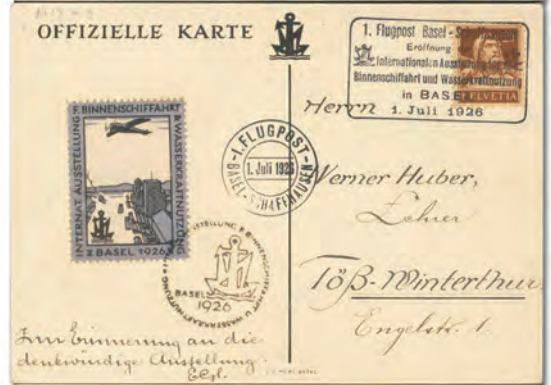 OFFIZIELLE KARTE
1. Flugpost Basel - Schaffhausen
Eröffnung
Internationalen Ausstellung für
Binnenschiffahrt und Wasserkraftnutzung
in BASEL
1. Juli 1926
HELVETIA
INTERNAT AUSSTELLUNG F. BINNENSCHIFFAHRT & WASSERKRAFTNUTZUNG
BASEL 1926
1. FLUGPOST
1. Juli 1926
BASEL - SCHAFFHAUSEN
AUSSTELLUNG F. BINNENSCHIFFAHRT U. WASSERKRAFTNUTZUNG
BASEL
1926
Herrn
Werner Huber,
Lehrer
Töß-Winterthur.
Engelstr. 1.
Zur Erinnerung an die
denkwürdige Ausstellung.